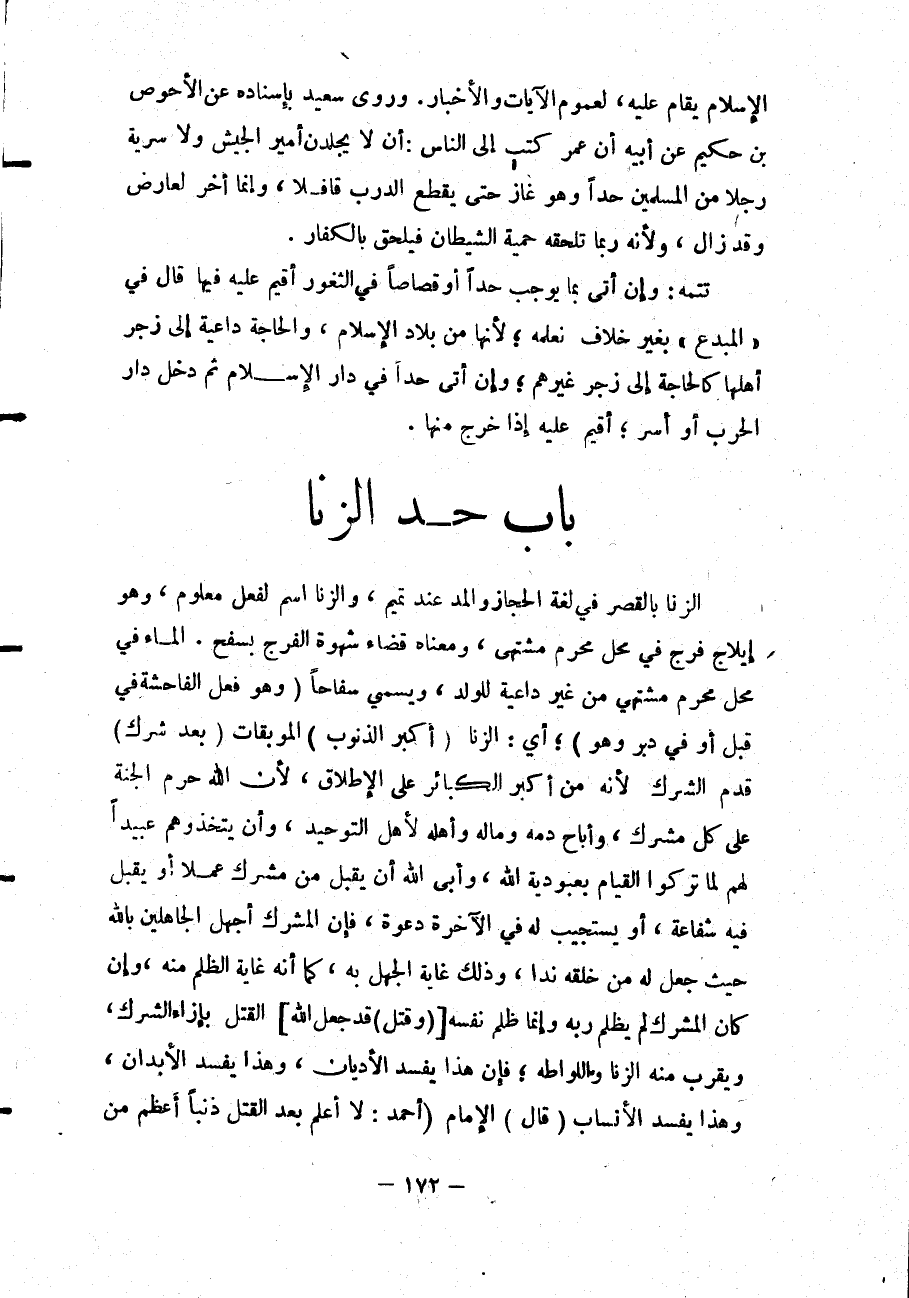 الإسلام يقام عليه، لعموم الآيات والأخبار. وروى سعيد بإسناده عن الأحوص
بن حكيم عن أبيه أن عمر كتب إلى الناس : أن لا يجلدن أمير الجيش ولا سرية
رجلا من المسلمين حداً وهو غاز حتى يقطع الدرب قافـلا ، وإنما أخر لعارض
وقد زال ، ولأنه ربما تلحقه حمية الشيطان فيلحق بالكفار .
تتمه : وإن أتى بما يوجب حداً أو قصاصاً في الثغور أقيم عليه فيها قال في
« المبدع » بغير خلاف نعلمه ؛ لأنها من بلاد الإسلام ، والحاجة داعية إلى زجر
أهلها كالحاجة إلى زجر غيرهم ؛ وإن أتى حداً في دار الإســـلام ثم دخل دار
الحرب أو أسر ؛ أقيم عليه إذا خرج منها .
باب حـد الزنا
الزنا بالقصر في لغة الحجاز والمد عند تميم ، والزنا اسم لفعل معلوم ، وهو
إيلاج فرج في محل محرم مشتهى ، ومعناه قضاء شهوة الفرج بسفح . المـاء في
محل محرم مشتهي من غير داعية للولد ، ويسمي سفاحاً ( وهو فعل الفاحشة في
قبل أو في دبر وهو ) ؛ أي : الزنا ( أكبر الذنوب ) الموبقات ( بعد شرك )
قدم الشرك لأنه من أكبر الكبائر على الإطلاق ، لأن الله حرم الجنة
على كل مشرك ، وأباح دمه وماله وأهله لأهل التوحيد ، وأن يتخذوهم عبيداً
لهم لما تركوا القيام بعبودية الله ، وأبى الله أن يقبل من مشرك عمـلا أو يقبل
فيه شفاعة ، أو يستجيب له في الآخرة دعوة ، فإن المشرك أجهل الجاهلين بالله
حيث جعل له من خلقه ندا ، وذلك غاية الجهل به ، كما أنه غاية الظلم منه ، وإن
كان المشرك لم يظلم ربه وإنما ظلم نفسه [(وقتل) قد جعل الله] القتل بإزاء الشرك ،
ويقرب منه الزنا واللواطه ؛ فإن هذا يفسد الأديان ، وهذا يفسد الأبدان ،
وهذا يفسد الأنساب ( قال ) الإمام (أحمد : لا أعلم بعد القتل ذنباً أعظم من
– ١٧٢ –